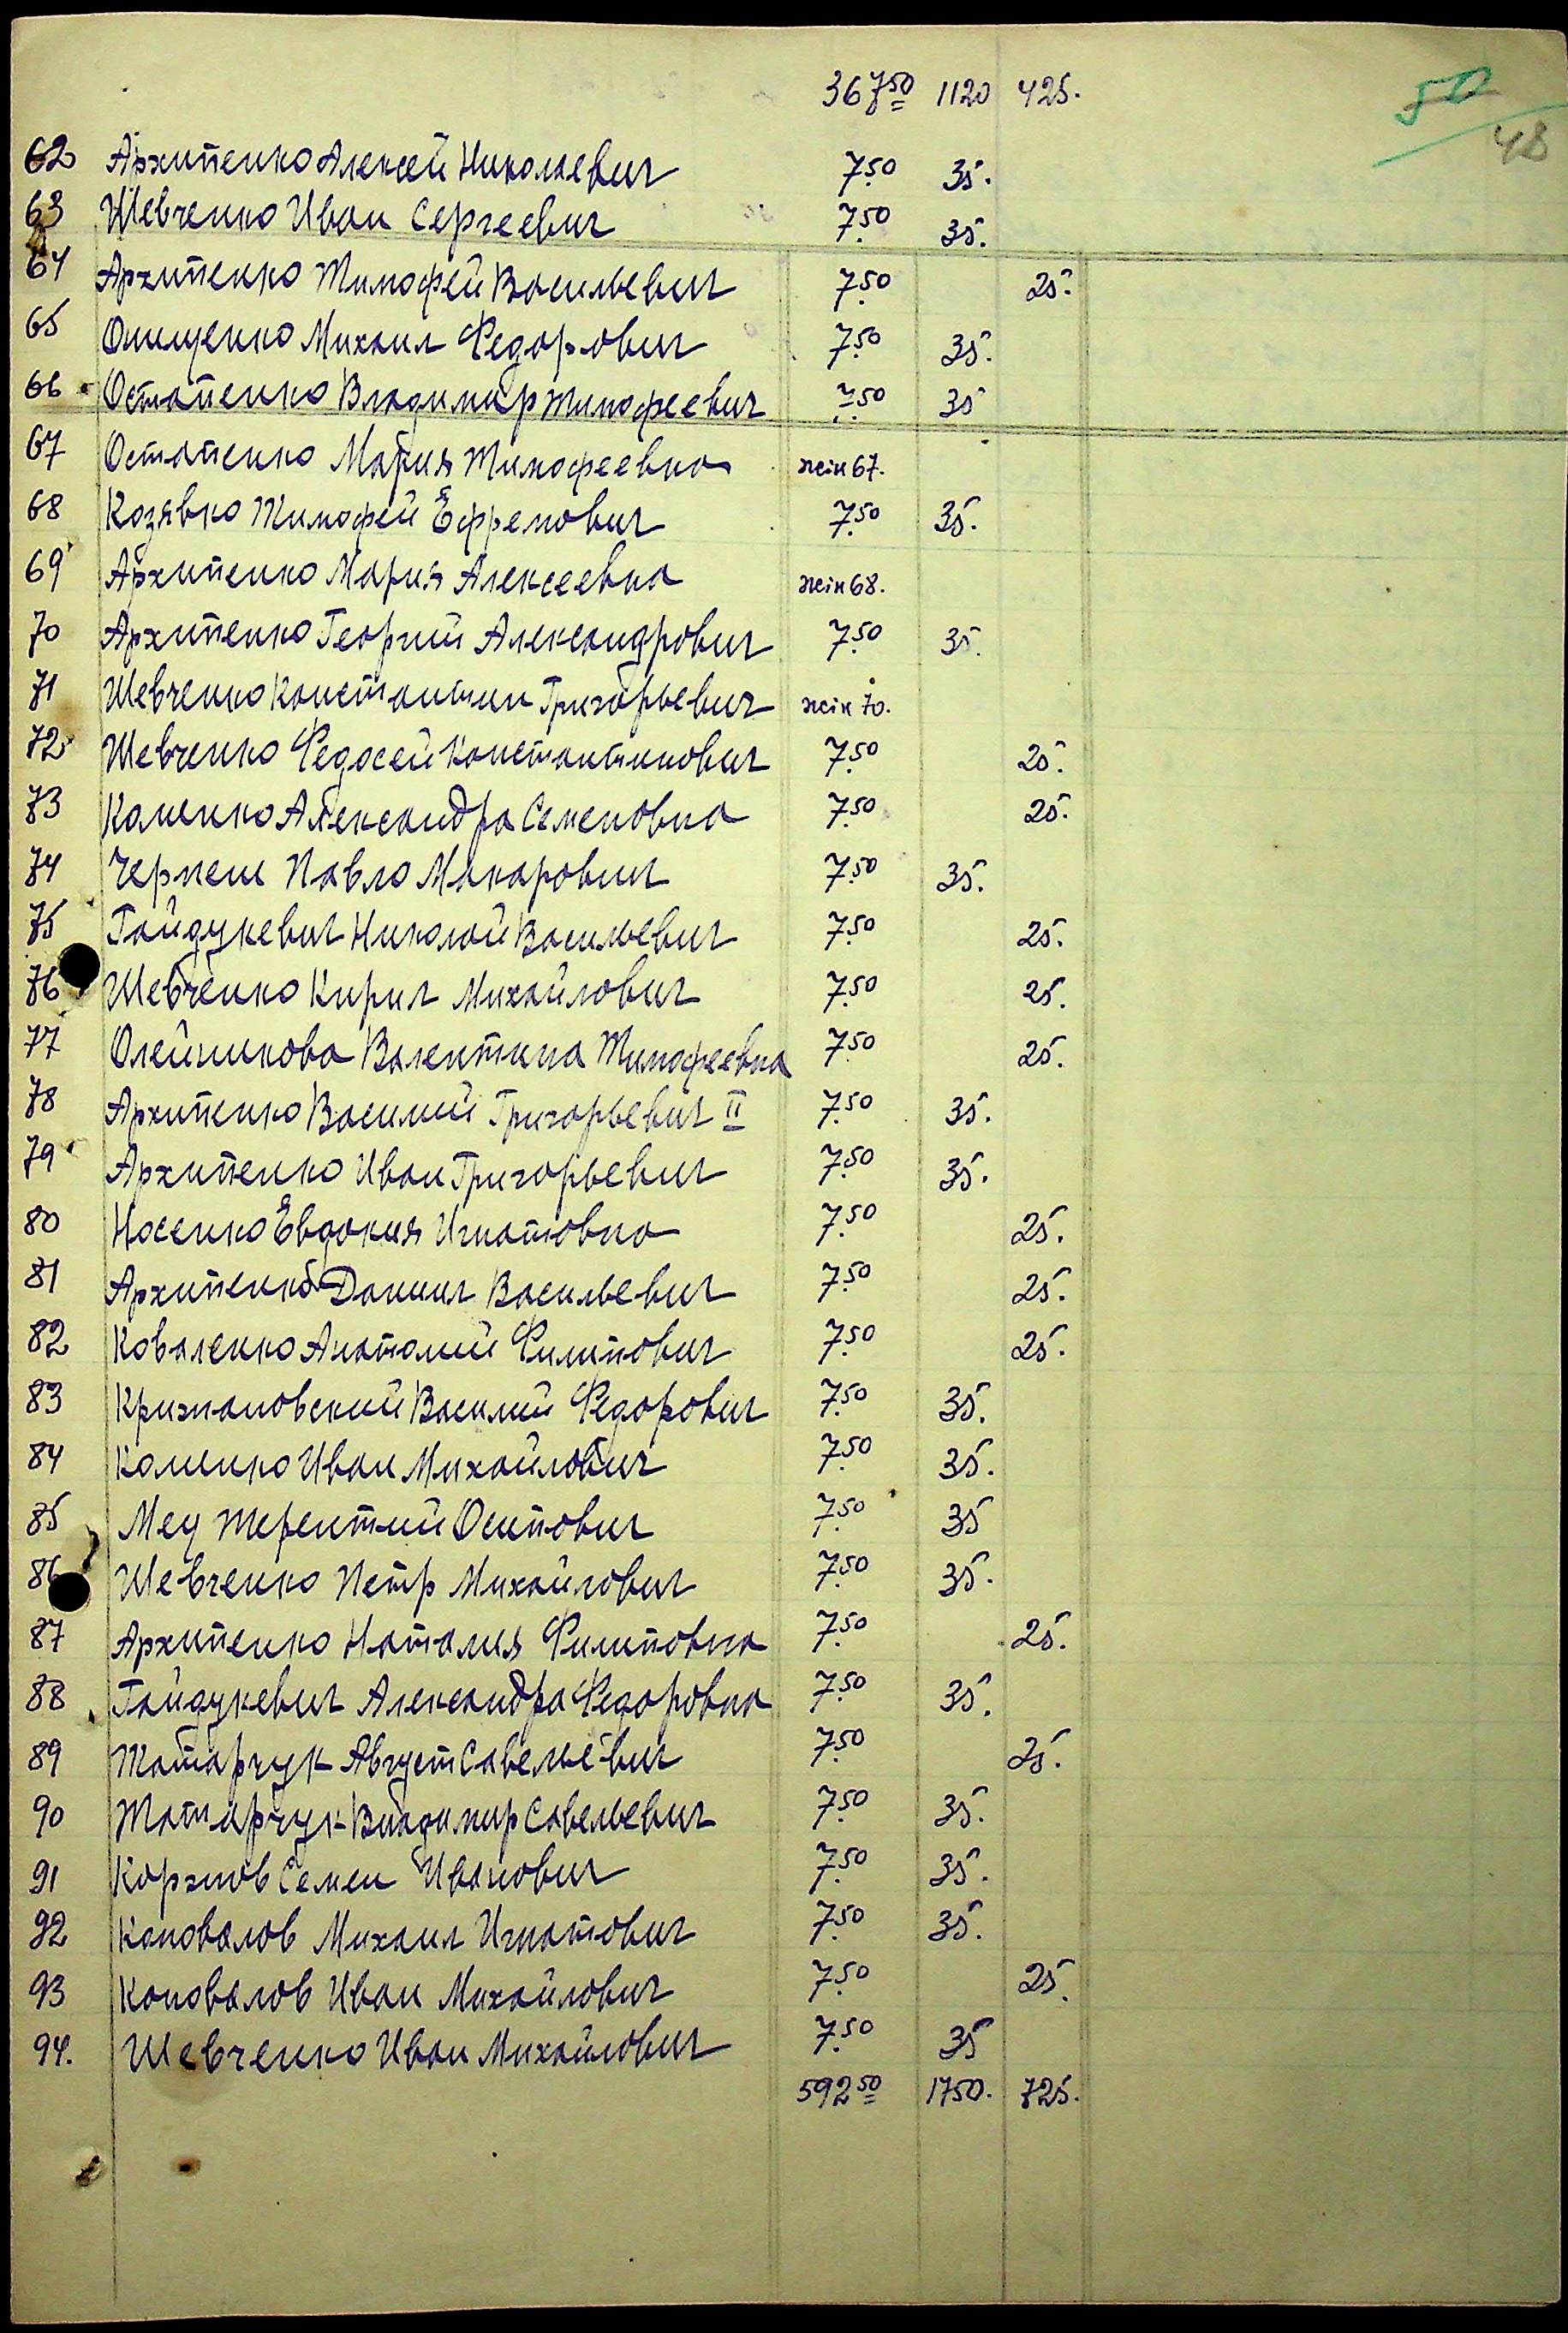 50
48
367 50 1120 425.
62 Архипенко Алексей Николаевич 7.50 35.
63 Шевченко Иван Сергеевич 7.50 35.
64 Архипенко Тимофей Васильевич 7.50 25.
65 Онищенко Михаил Федорович 7.50 35.
66 Остапенко Владимир Тимофеевич 7.50 35
67 Остапенко Мария Тимофеевна 67.
68 Козявко Тимофей Ефремович 7.50 35.
69 Архипенко Мария Алексеевна 68.
70 Архипенко Георгий Александрович 7.50 35.
71 Шевченко Константин Григорьевич 70.
72 Шевченко Федосей Константинович 7.50 25.
73 Каленко Александра Семеновна 7.50 25.
74 Павло Макарович 7.50 35.
75 Гайдукевич Николай Васильевич 7.50 25.
76 Шевченко Кирил Михайлович 7.50 25.
77 Олейникова Валентина Тимофеевна 7.50 25.
78 Архипенко Василий Григорьевич II 7.50 35.
79 Архипенко Иван Григорьевич 7.50 35.
80 Носенко Евдокия Игнатовна 7.50 25.
81 Архипенко Даниил Васильевич 7.50 25.
82 Коваленко Анатолий Филипович 7.50 25.
83 Крижановский Василий Федорович 7.50 35.
84 Каленко Иван Михайлович 7.50 35.
85 Терентий Осипович 7.50 35
86 Шевченко Петр Михайлович 7.50 35.
87 Архипенко Наталия Филиповна 7.50 25.
88 Гайдукевич Александра Федоровна 7.50 35.
89 Татарчук Август Савельевич 7.50 25.
90 Татарчук Владимир Савельевич 7.50 35.
91 Коржов Семен Иванович 7.50 35.
92 Коновалов Михаил Игнатович 7.50 35.
93 Коновалов Иван Михайлович 7.50 25.
94. Шевченко Иван Михайлович 7.50 35
592 50 1750. 725.